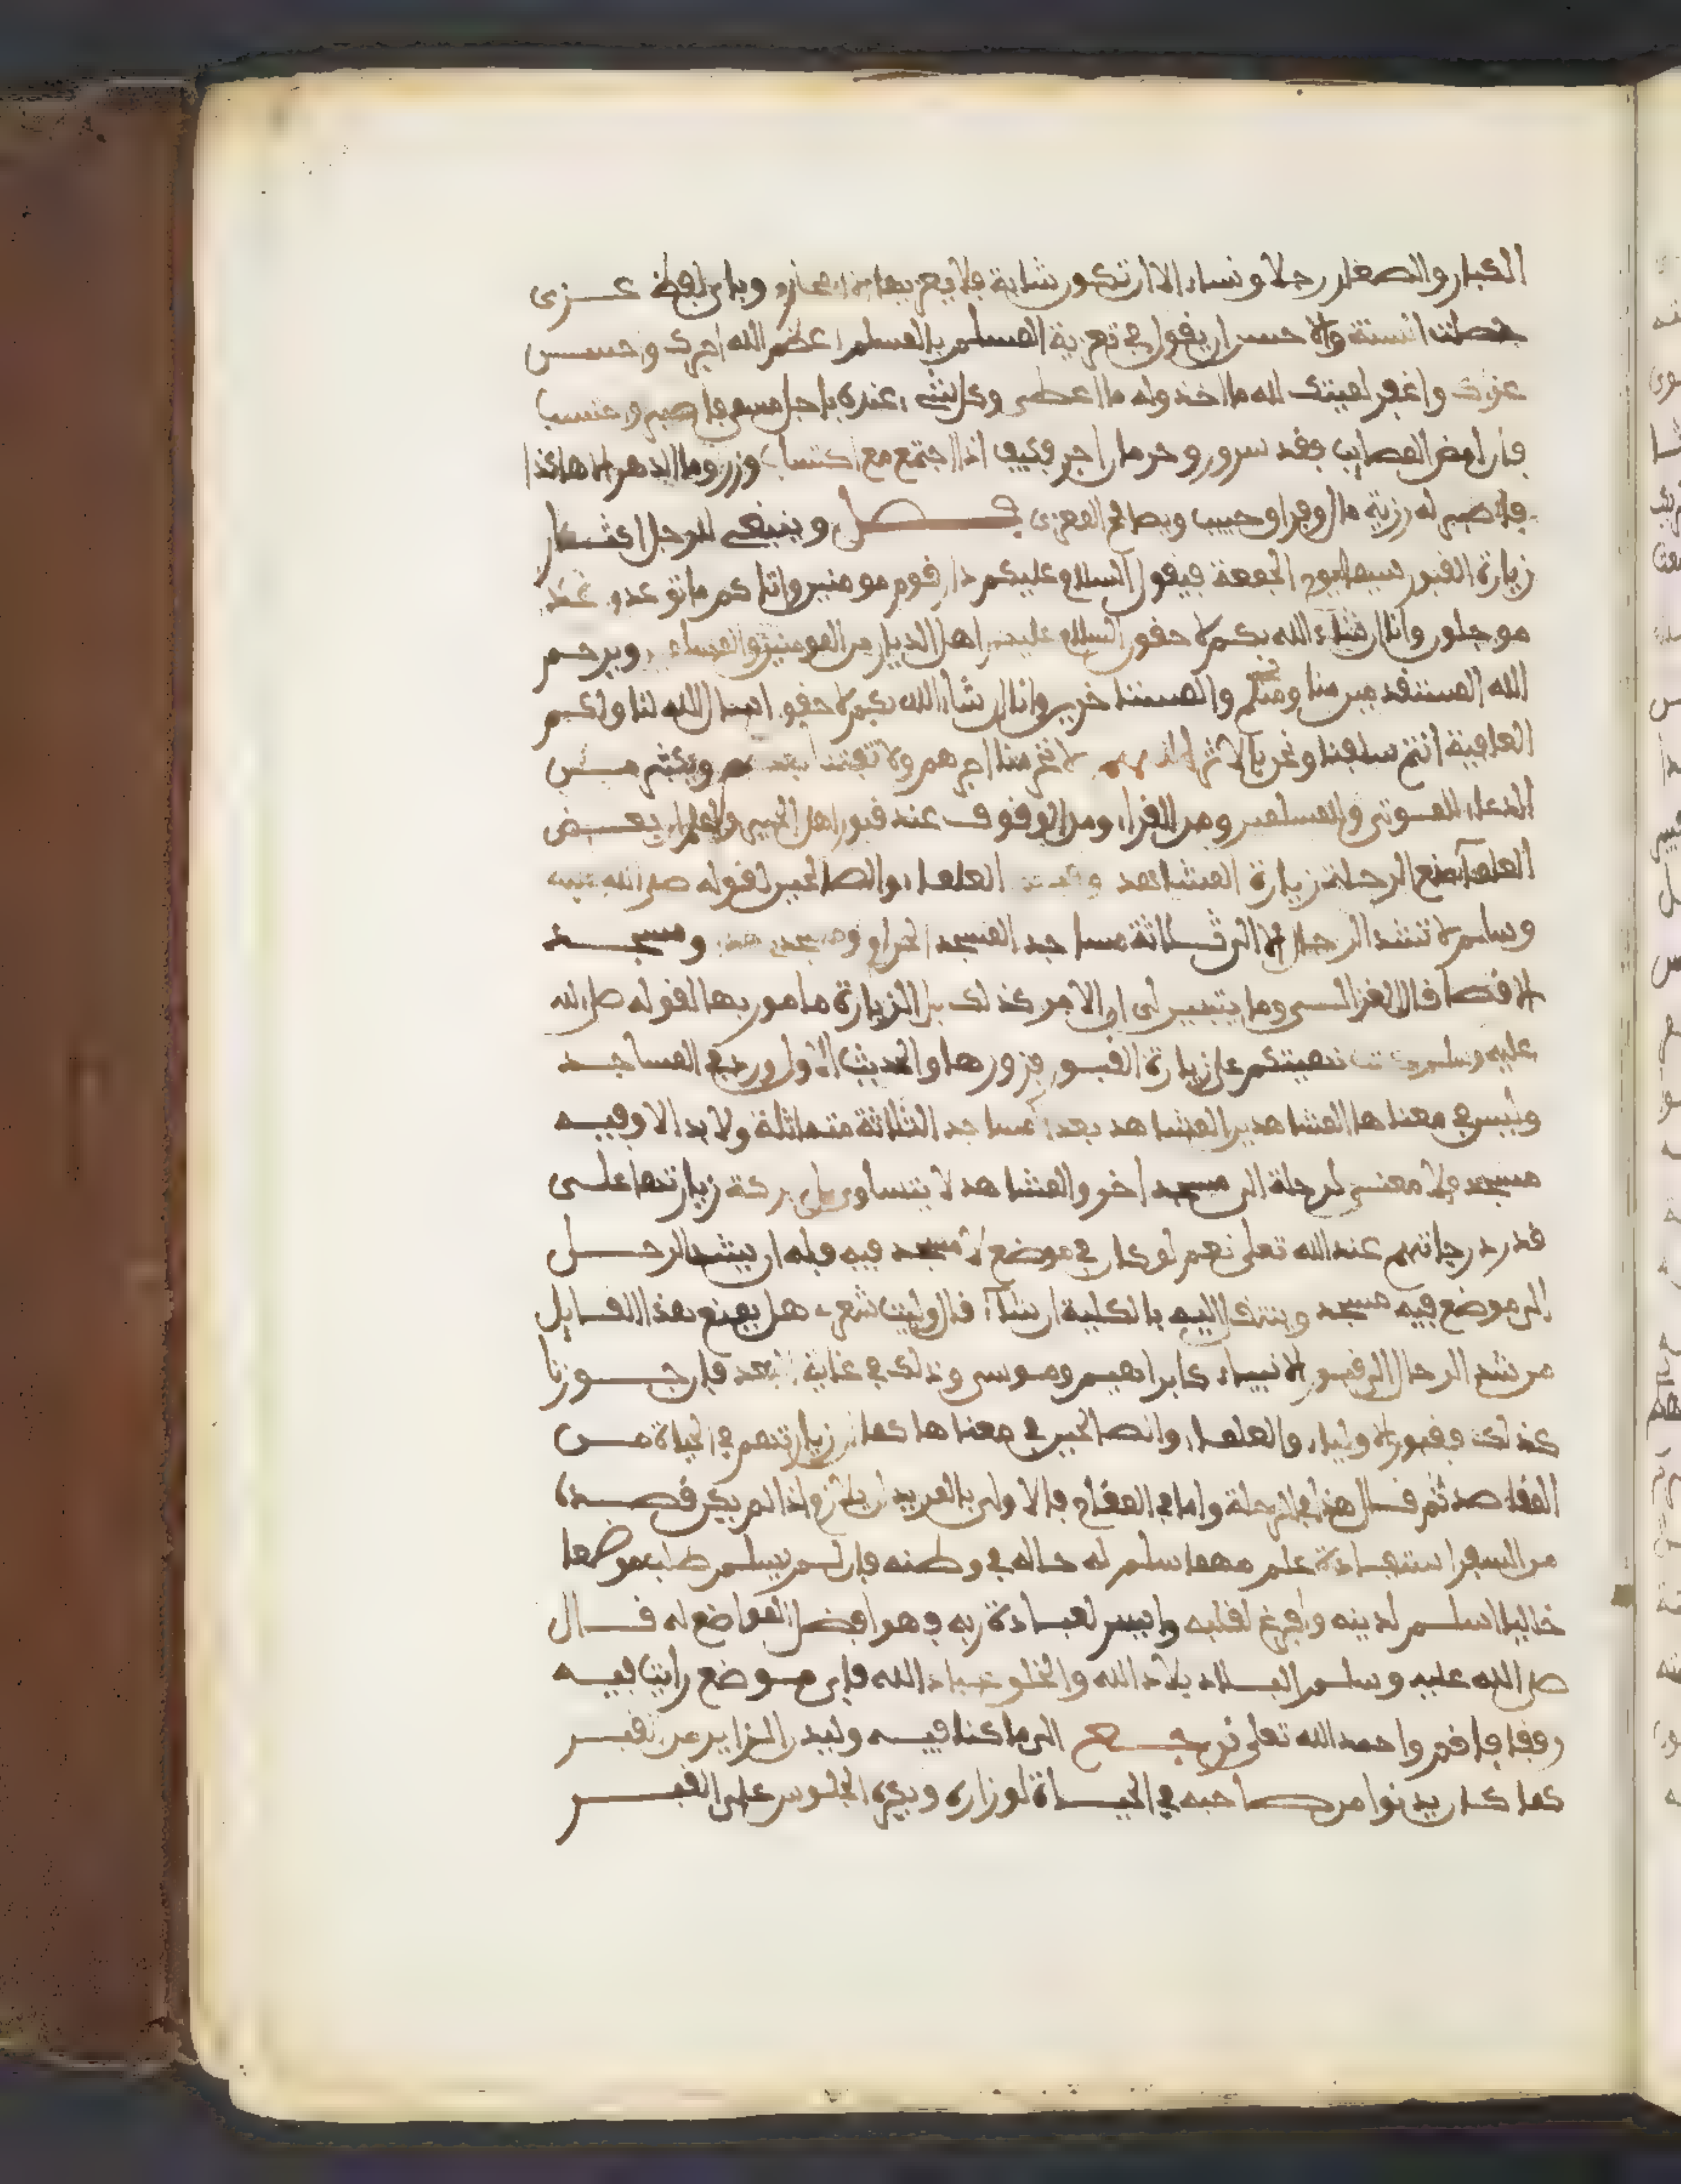 الكبار والصغار رجلا ونساء الا ان تكون شابة فلا يعزيها الا محارم وباي لفظ عزى
حصلت السنة والاحسن ان يقول في تعزية المسلم بالمسلم اعظم الله اجرك واحسن
عزاك وغفر لميتك لله ما اخذ وله ما اعطى وكل شيء عنده باجل مسمى فاصبر واحتسب
فان امض المصايب فقد سرور وحرمان اجر فكيف اذا اجتمع مع اكتساب وزر وما الدهر الا هاكذا
فاصبر له رزية مال او فراق حبيب ويصافح المعزى فصل وينبغي للرجل اكثار
زيارة القبور سيما يوم الجمعة فيقول السلام عليكم دار قوم مومنين واتاكم ما توعدون غدا
موجلون وانا ان شاء الله بكم لاحقون السلام عليكم اهل الديار من المومنين والمسلمين ويرحم
الله المستقدمين منا ومنكم والمستاخرين وانا ان شاء الله بكم لاحقون اسال الله لنا ولكم
العافية انتم سلفنا ونحن بالاثر اللهم لا تحرمنا اجرهم ولا تفتنا بعدهم ويكثر من
الدعاء للموتى والمسلمين ومن القراءة ومن الوقوف عند قبور اهل الخير والعلم بعض
العلماء منع الرحلة زيارة المشاهد العلماء والصالحين لقوله صلى الله عليه
وسلم لا تشد الرحال الا الى ثلاثة مساجد المسجد الحرام ومسجدي هذا ومسجد
الاقصا قال الغزالي وما يتبين لي ان الامر كذلك بل الزيارة مامور بها لقوله صلى الله
عليه وسلم كنت نهيتكم عن زيارة القبور فزورها والحديث الاول ورد في المساجد
وليس في معناها المشاهد بين المشاهد بعد المساجد الثلاثة متماثلة ولا بد الا وفيه
مسجد فلا معنى لرحلة الى مسجد اخر والمشاهد لا يتساوى بل بركة زيارتها على
قدر درجاتهم عند الله تعلى نعم لو كان في موضع لا مسجد فيه فله ان يشد الرحل
الى موضع فيه مسجد وينتقل اليه بالكلية ان شاء قال وليت شعري هل يمنع هذا القايل
من شد الرحال الى قبور الانبياء كابراهيم وموسى وذلك في غاية البعد فان جوزنا
كذلك فقبور الاولياء والعلماء والصالحين في معناها كما ان زيارتهم في الحياة من
المقاصد ثم قال هذا في الرحلة واما في المقام فالاولى بالمريد ان يلازم اذا لم يكن قصده
من السفر استفادة علم مهما سلم له حاله في وطنه فان لم يسلم طلب موضعا
خاليا اسلم لدينه وافرغ لقلبه وايسر لعبادة ربه فهو افضل المواضع له قال
صلى الله عليه وسلم البلاد بلاد الله والخلق عباد الله فاي موضع رايت فيه
رفقا فاقم واحمد الله تعلى نرجع الى ما كنا فيه وليدن الزاير من القبر
كما كان يدنوا من صاحبه في الحياة لو زاره ويكره الجلوس على القبر